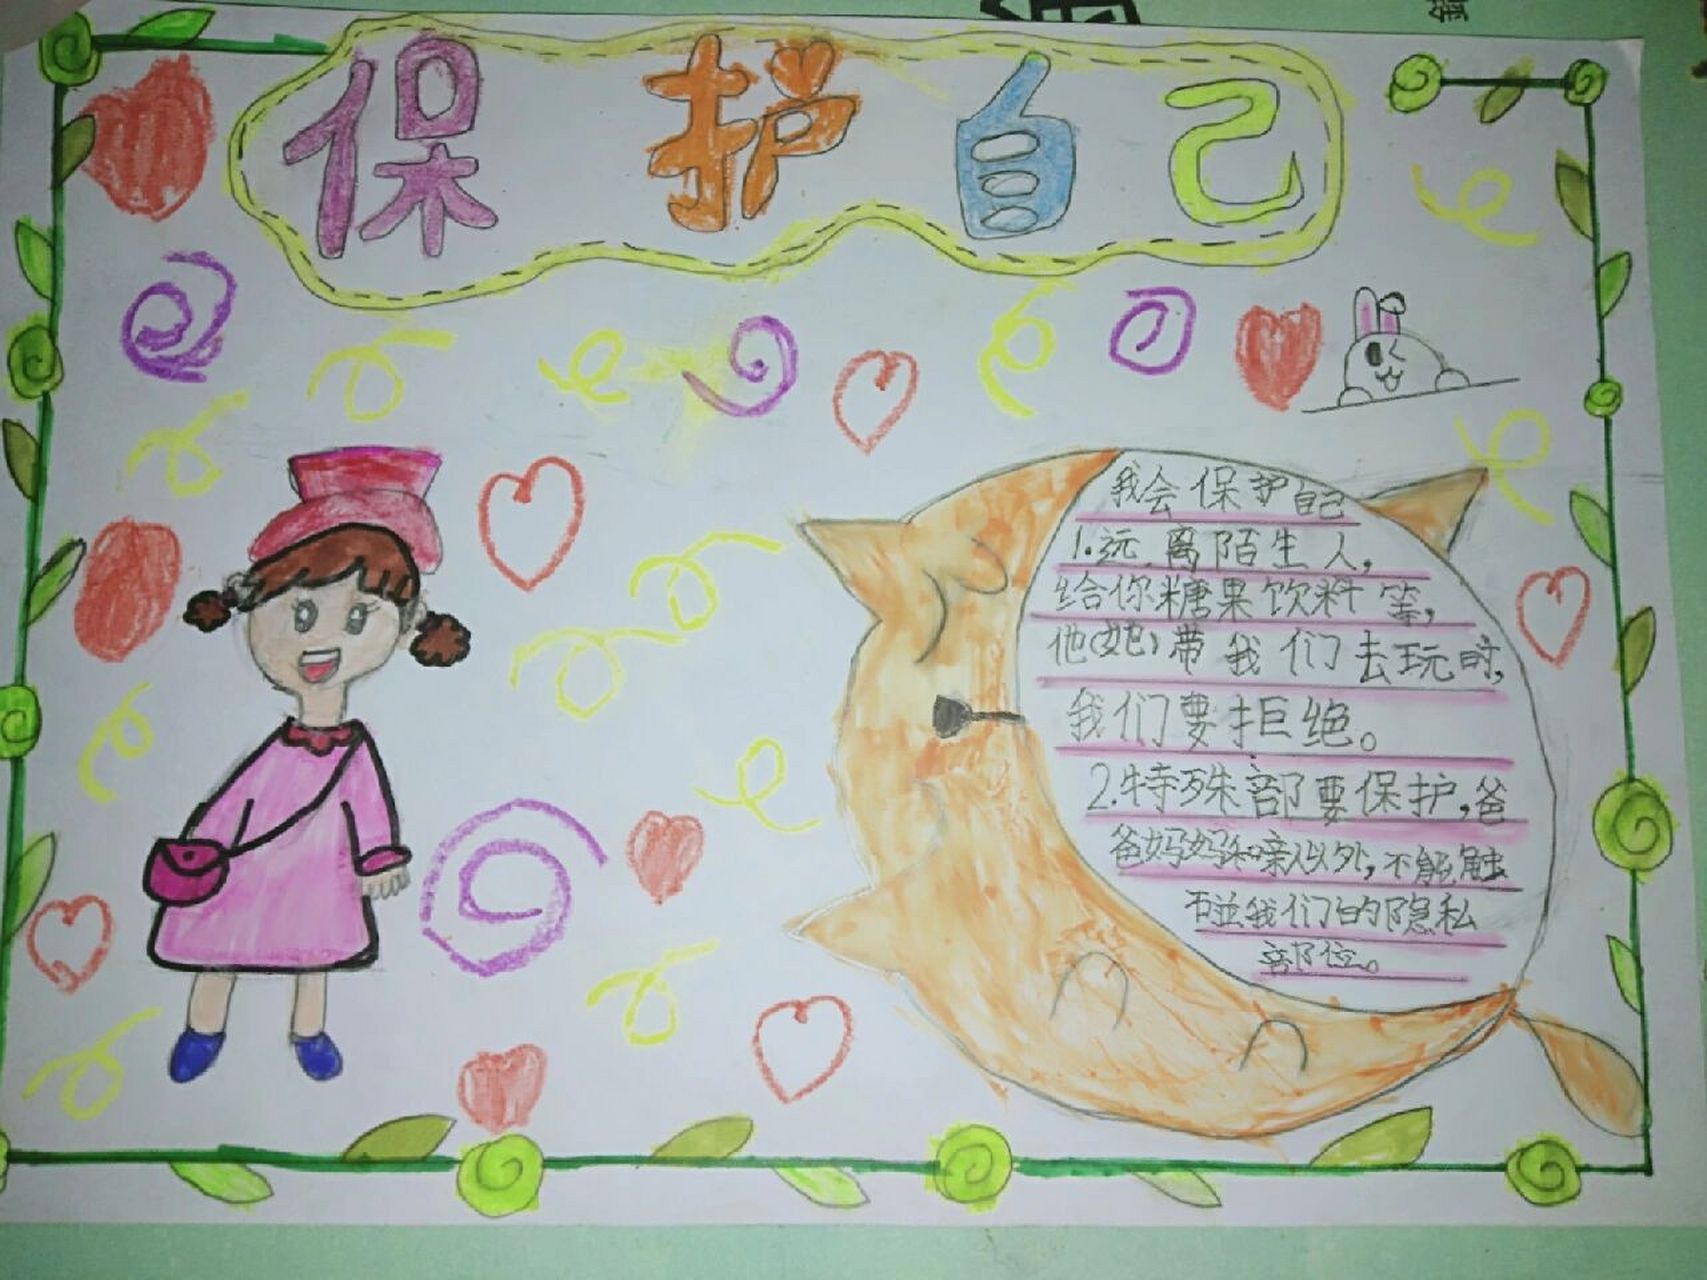 保护自己
我会保护自己
1.远离陌生人,
给你糖果饮料等,
他(她)带我们去玩时,
我们要拒绝。
2.特殊部要保护,爸
爸妈妈和亲人以外,不能触
碰我们的隐私
部位。